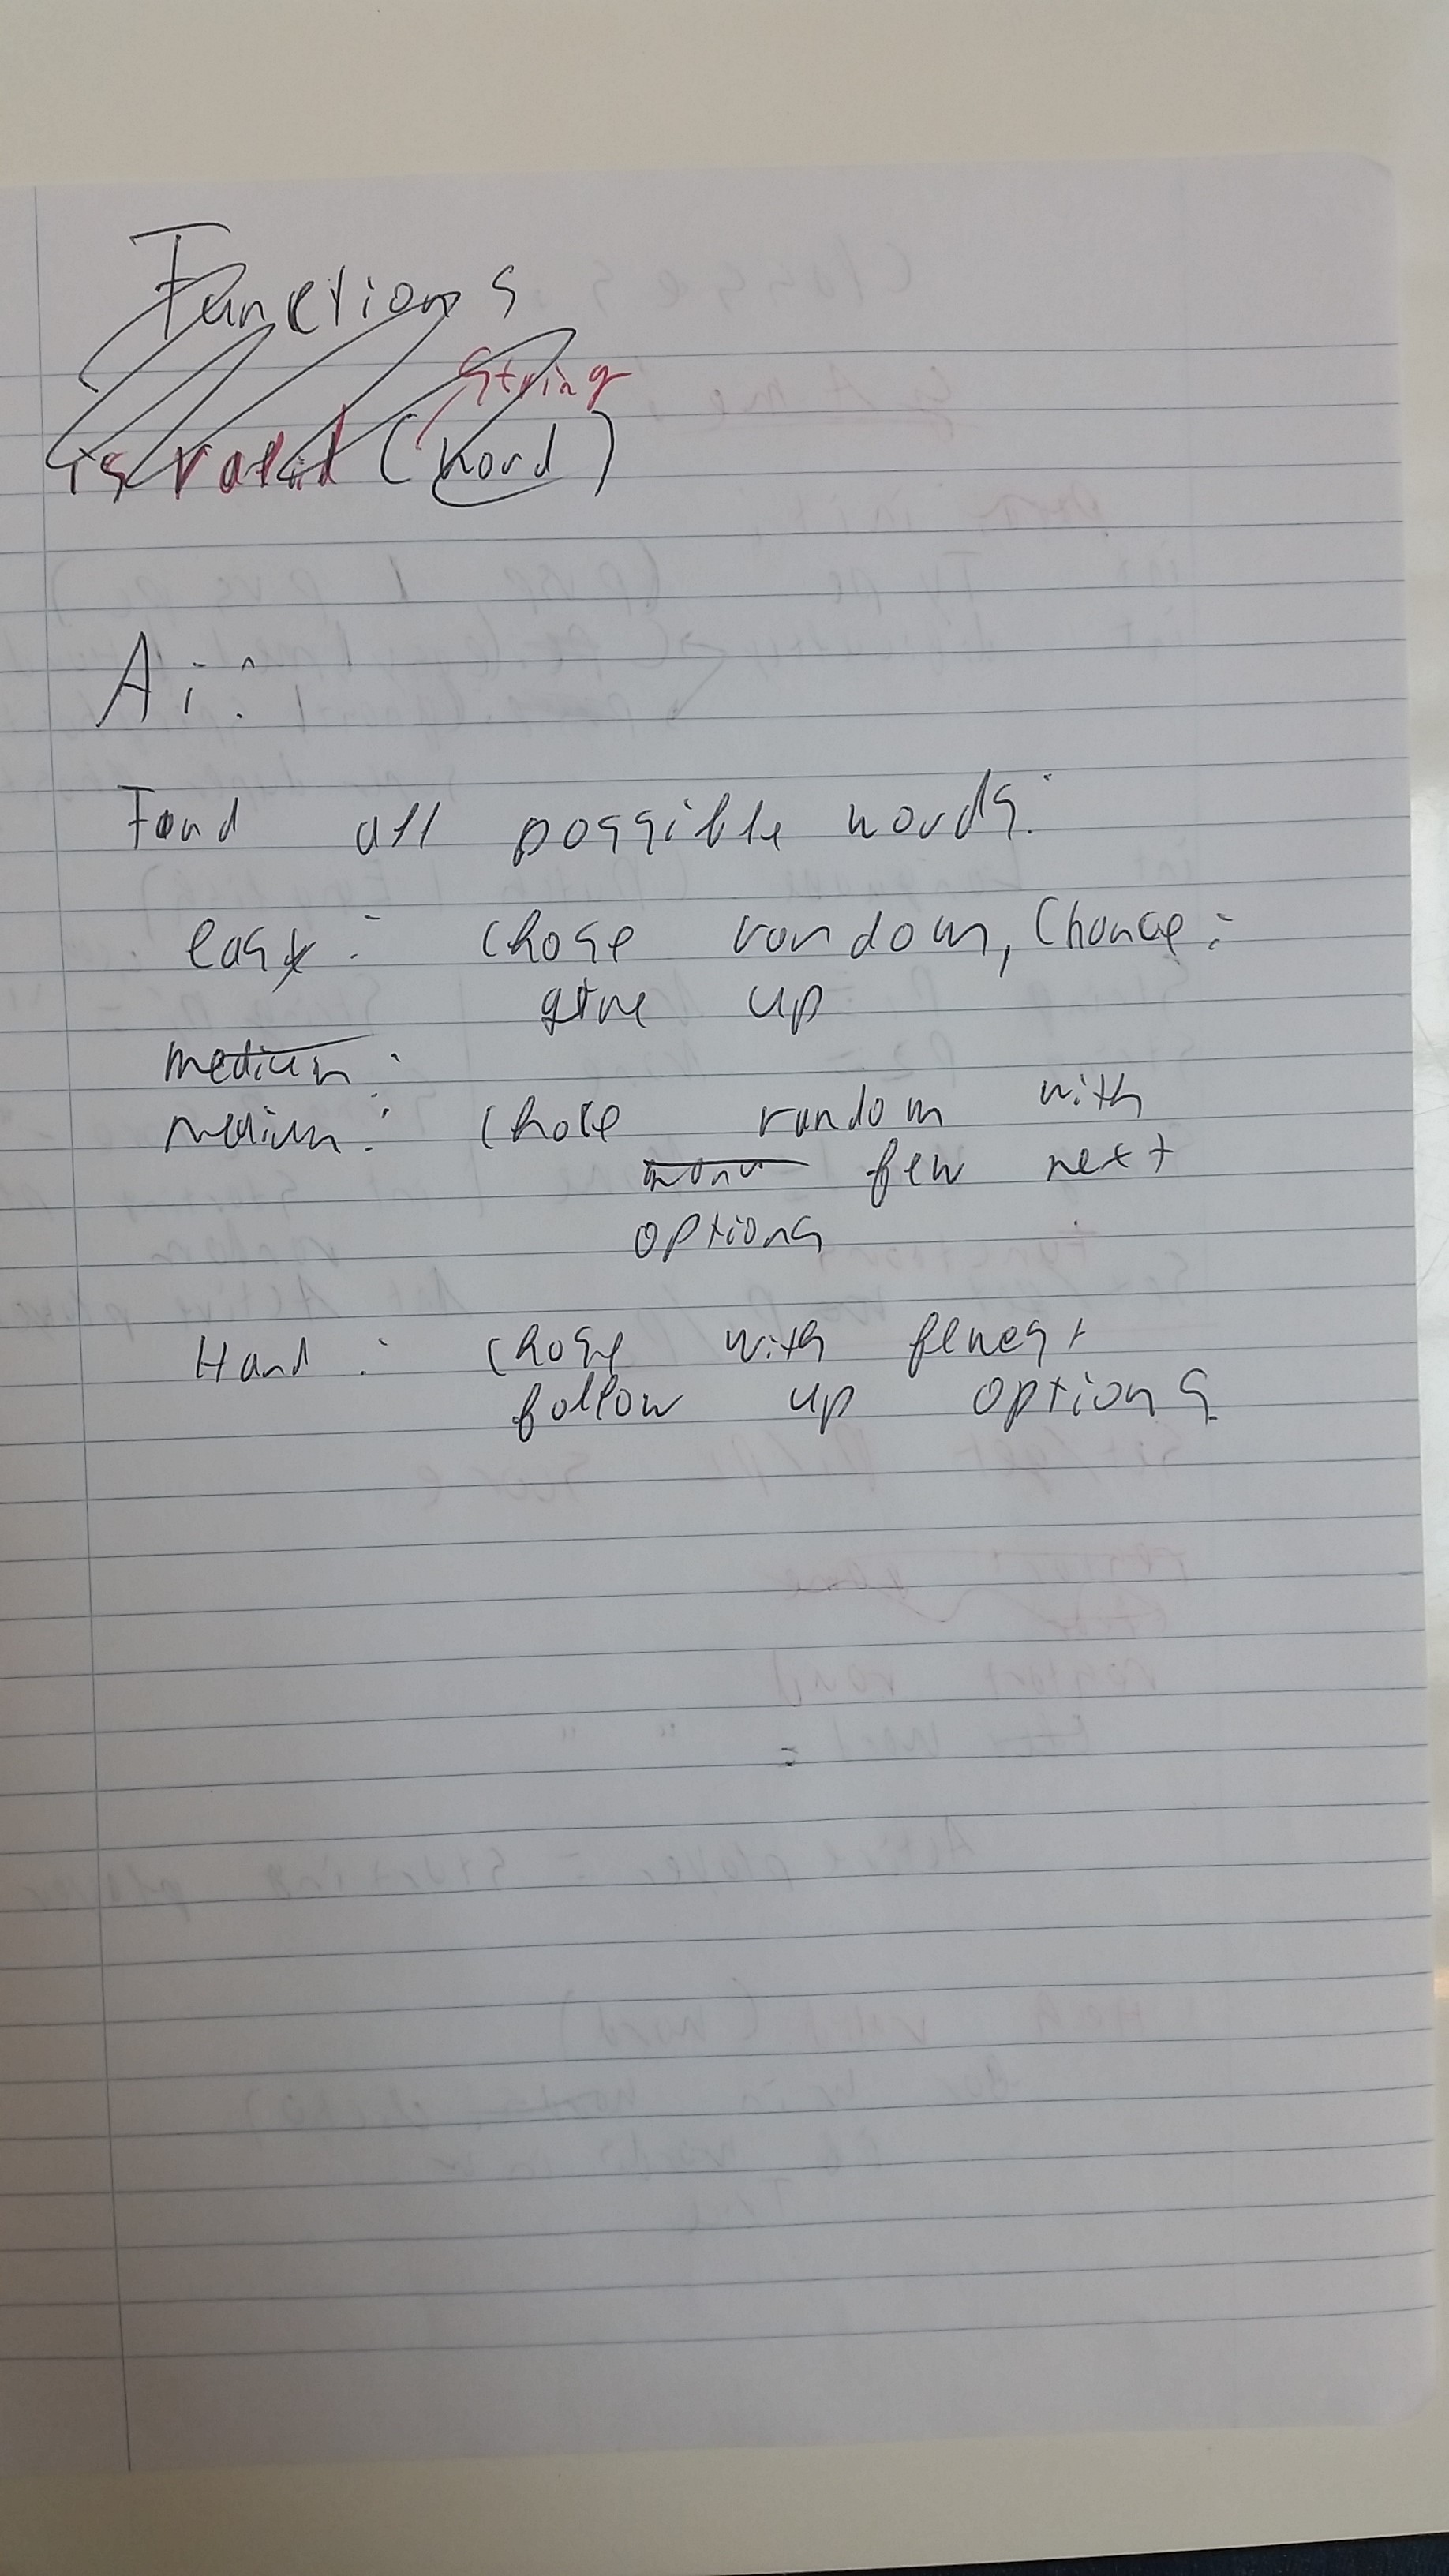 Functions
String
is valid (word)
Ai:
Find all possible words:
easy: chose random, Chance:
give up
medium:
medium: chose random with
few next
options
Hard: chose with fewest
follow up options